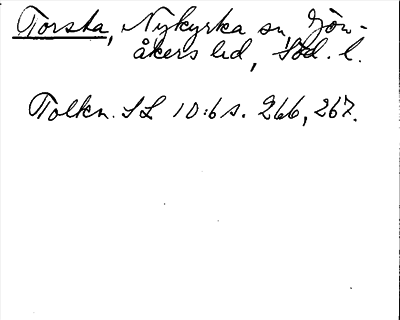 Torsta, Nykyrka sn, Jön-
åkers hd, Söd. l.
Tolkn. SL 10:6 s. 266, 267.